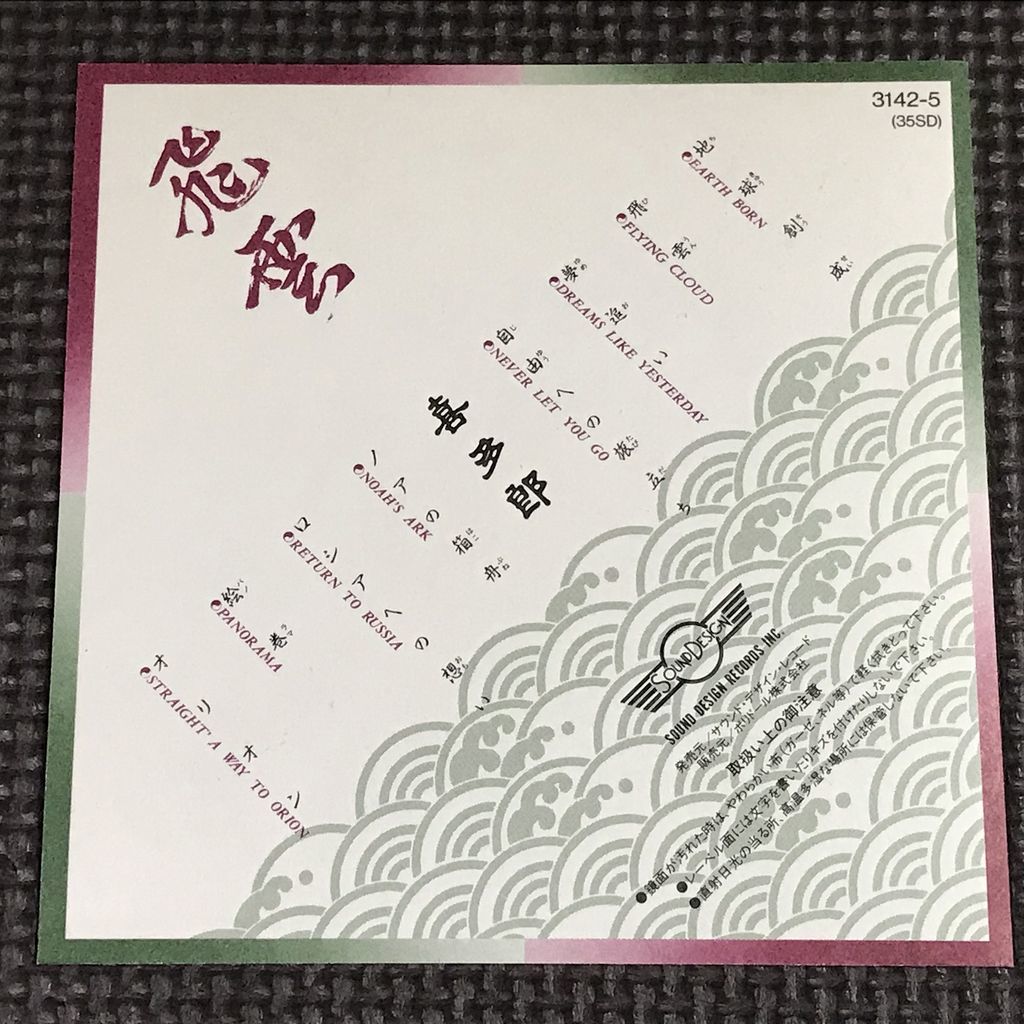 3142-5
(35SD)
飛雲
地球創成
EARTH BORN
飛雲
FLYING CLOUD
夢追い
DREAMS LIKE YESTERDAY
自由への旅立ち
NEVER LET YOU GO
喜多郎
ノアの箱舟
NOAH'S ARK
ロシアへの想い
RETURN TO RUSSIA
絵巻
PANORAMA
オリオン
STRAIGHT A WAY TO ORION
SOUND DESIGN
SOUND DESIGN RECORDS INC.
発売元/サウンド・デザイン・レコード
販売元/ポリドール株式会社
取扱い上の御注意
●鏡面が汚れた時は、やわらかい布(ガーゼ、ネル等)で軽く拭きとって下さい。
●レーベル面には文字を書いたりキズを付けたりしないで下さい。
●直射日光の当る所、高温多湿な場所には保管しないで下さい。